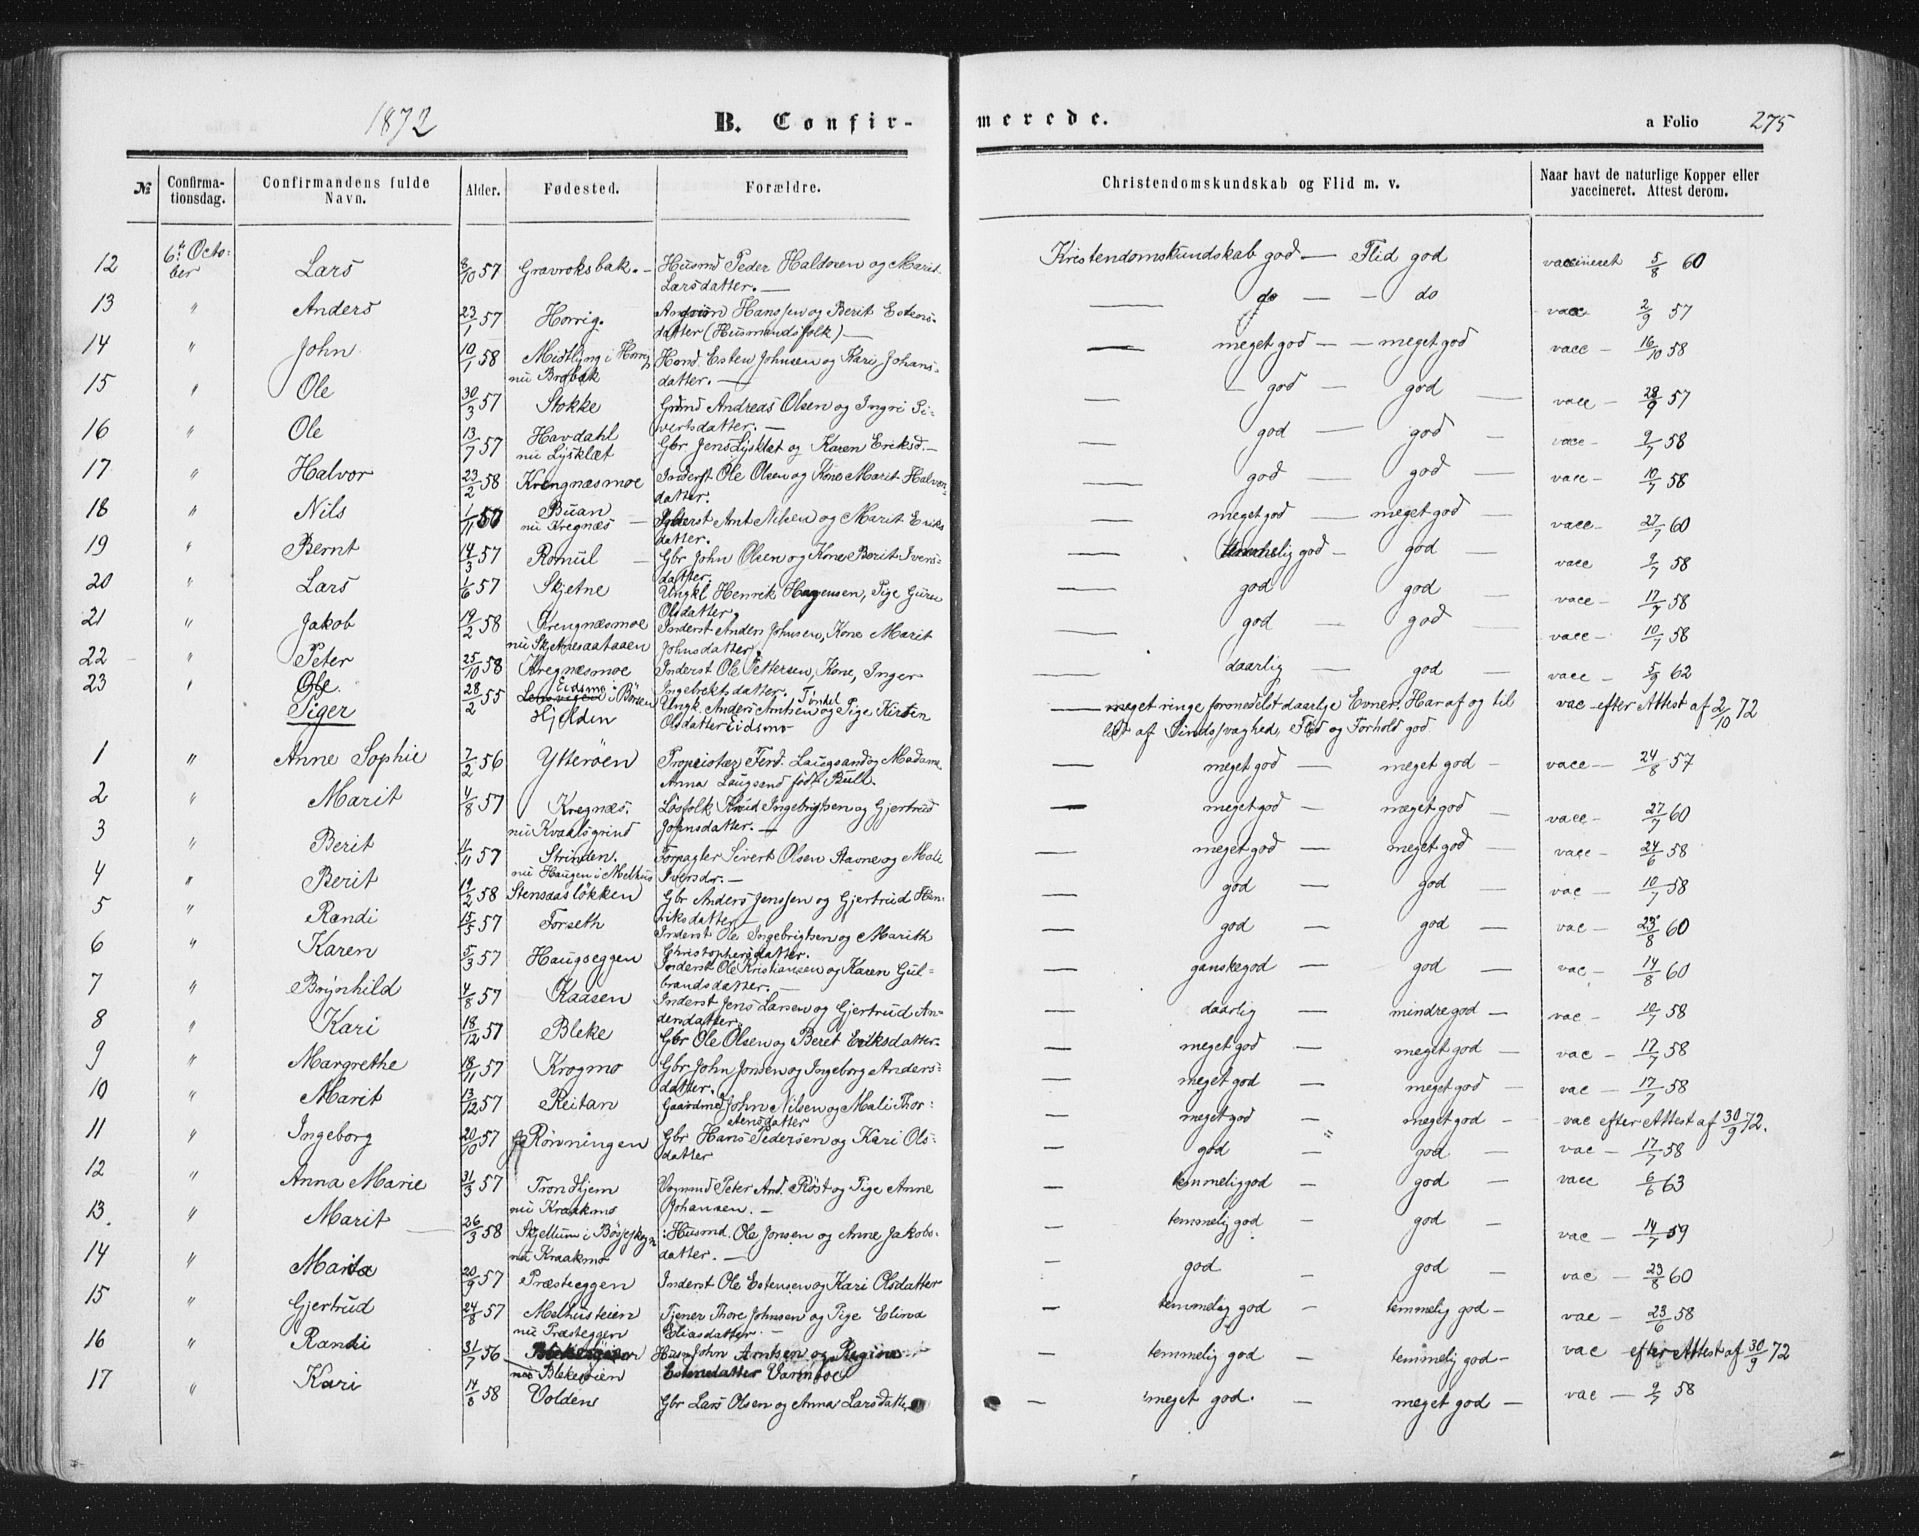 1872 B. Confir- merede. a Folio 275
№ Confirma-tionsdag. Confirmandens fulde Navn. Alder. Fødested. Forældre. Christendomskundskab og Flid m. v. Naar havt de naturlige Kopper eller vaccineret. Attest derom.
12 6te Octo-ber Lars 8/10 57 Gravroksbak. Husmd Peder Haldosen og Marit Larsdatter. Kristendomskundskab god — Flid god vaccineret 5/8 60
13 " Anders 23/1 57 Horrig. Hanssen og Berit Estens-datter (Husmandsfolk) — do — do vacc 2/9 57
14 " John 10/1 58 Midtlyng i Horrig nu Brobak Esten Johnsen og Kari Johans-datter. — meget god — meget god vacc — 16/10 58
15 " Ole 30/3 57 Stokke Grdmd Andreas Olsen og Ingri Si-vertsdatter. — god — god vacc — 28/9 57
16 " Ole 13/7 57 Havdahl nu Lysklæt Gbr Jens Lysklæt og Karen Eriksd. — god — god vacc — 9/7 58
17 " Halvor 23/2 58 Krengnæsmoe Inderst Ole Olsen og Kone Marit Halvor-datter. god — god vacc — 10/7 58
18 " Nils 1/11 Buan nu Kregnæs Inderst Arnt Nilsen og Marit Eriks datter. meget god — meget god vacc — 27/7 60
19 " Bernt 14/3 57 Romul Gbr John Olsen og Kone Berit Ivers-datter. temmelig god — god vacc 9/7 58
20 " Lars 1/6 57 Skjetne Ungkl Henrik Hagensen, Pige Guru Olsdatter. god — god vacc — 17/7 58
21 " Jakob 19/2 58 Krengnæsmoe nu Skjetnesaataaen Inderst Anders Johnsen, Kone Marit Johnsdatter. god — god vacc — 10/7 58
22 " Peter 25/10 58 Kregnæsmoe Inderst Ole Pettersen, Kone, Inger Ingebrektsdatter. daarlig — god vacc — 5/9 62
23 " Ole. 28/2 55 Eidsmo i Börsen Ungk. Anders Arntsen og Pige Kirsten Olsdatter Eidsmo meget ringe formedelst daarlje Evner. Har af og til lidt af Sindssvaghed, Flid og Forhold god. vac efter Attest af 2/10 72
Piger Hjelden
1 " Anne Sophie 7/2 56 Ytteröen Propriotær Ferd. Laugsand og Madame Anna Laugsend født Bull. meget god — meget god — vacc — 24/8 57
2 " Marit 4/8 57 Kregnæs. nu Kvaalsgrind Løsfolk Knud Ingebrigtsen og Gjertrud Johnsdatter. — meget god — meget god vacc — 27/7 60
3 " Berit 1/11 57 Strinden. nu Haugen i Melhus Forpagter Sivert Olsen Stavne og Mali Iversdr. — meget god — meget god — vacc — 24/6 58
4 " Berit 19/2 58 Stensaasløkken Gbr Anders Jenssen og Gjertrud Hen-riksdatter — god — god — vac — 10/7 58
5 " Randi 15/5 57 Forseth Inderst Ole Ingebrigtsen og Marith Christophersdatter. god — god — vac — 23/8 60
6 " Karen 5/3 57 Haugseggen Inderst Ole Kristiansen og Karen Gul-brandsdatter. — ganske god — god — vac — 14/8 60
7 " Brynhild 4/8 57 Kaasen Inderst Jens Larsen og Gjertrud An-dersdatter. daarlig — mindre god — vac — 10/7 58
8 " Kari 18/12 57 Bleke Gbr Ole Olsen og Beret Eriksdatter. meget god — meget god — vac — 17/7 58
9 " Margrethe 18/11 57 Krogmo Gbr John Jonsen og Ingeborg Anders-datter. meget god — meget god — vac — 17/7 58
10 " Marit 13/12 57 Reitan Gaardmd John Nilsen og Mali Thor-stensdatter meget god — meget god — vac efter Attest af 30/9 72.
11 " Ingeborg 20/10 57 Rövningen Gbr Hans Pedersen og Kari Ols-datter god " god — vac — 17/7 58
12 " Anna Marie 31/3 57 Trondhjem nu Kraakmo Peter And. Röst og Pige Anne Johansen. — temmelig god — god — vacc 6/6 63
13. " Marit 26/3 58 Skjellum i nu Kraakmo Husmd. Ole Jonsen og Anne Jakobs-datter. — temmelig god — god — vac — 14/7 59
14 " Marit 20/9 57 Præsteggen Inderst Ole Estensen og Kari Olsdatter god — god — vac — 23/8 60
15 " Gjertrud 24/8 57 Melhusteien nu Præsteggen Tjener Thore Johnsen og Pige Elina Eliasdatter. — temmelig god — temmelig god — vac — 23/6 58
16 " Randi 31/7 56 nu Blekesøien John Arntsen og Regina Estensdatter temmelig god — temmelig god — vac efter Attest af 30/9 72
17 " Kari 14/3 58 Volden Gbr Lars Olsen og Anna Larsdatter meget god. — meget god — vac — 9/7 58